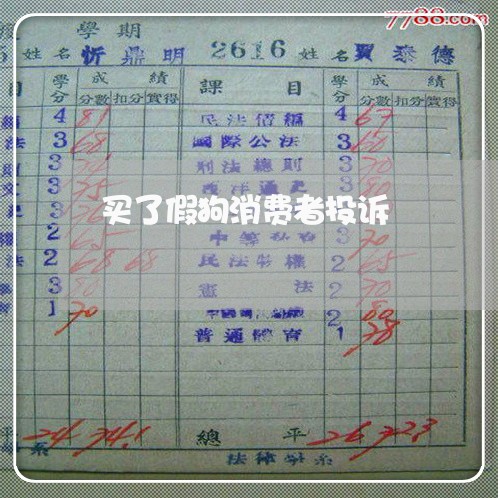 7788.com
學期
姓名 忻鼎明 2616 姓名 賈泰德
目 學分 成績 課目 學分 成績
分數 扣分 實得 分數 扣分 實得
4 81 民法債編 4 67
法 3 68 國際公法 3 60
3 刑法總則 3 70
3 75 西洋通史 3 80
买了假狗消费者投诉
2 65 3 70
法 2 68 68 民法物權 2 65
3 80 憲法 2 70
1 70 2 80
普通體育 1 78
平 24 74.1 總平 26 72.3
系 法律學系